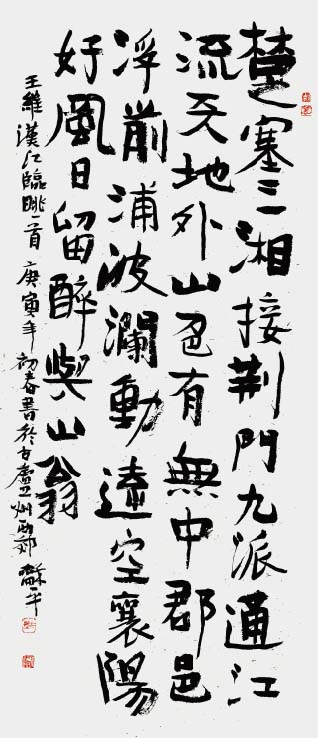 楚塞三湘接荆門九派通江
流天地外山色有無中郡邑
浮前浦波瀾動遠空襄陽
好風日留醉與山翁
王維漢江臨眺一首 庚寅年初春書於古廬州西郊 穌平